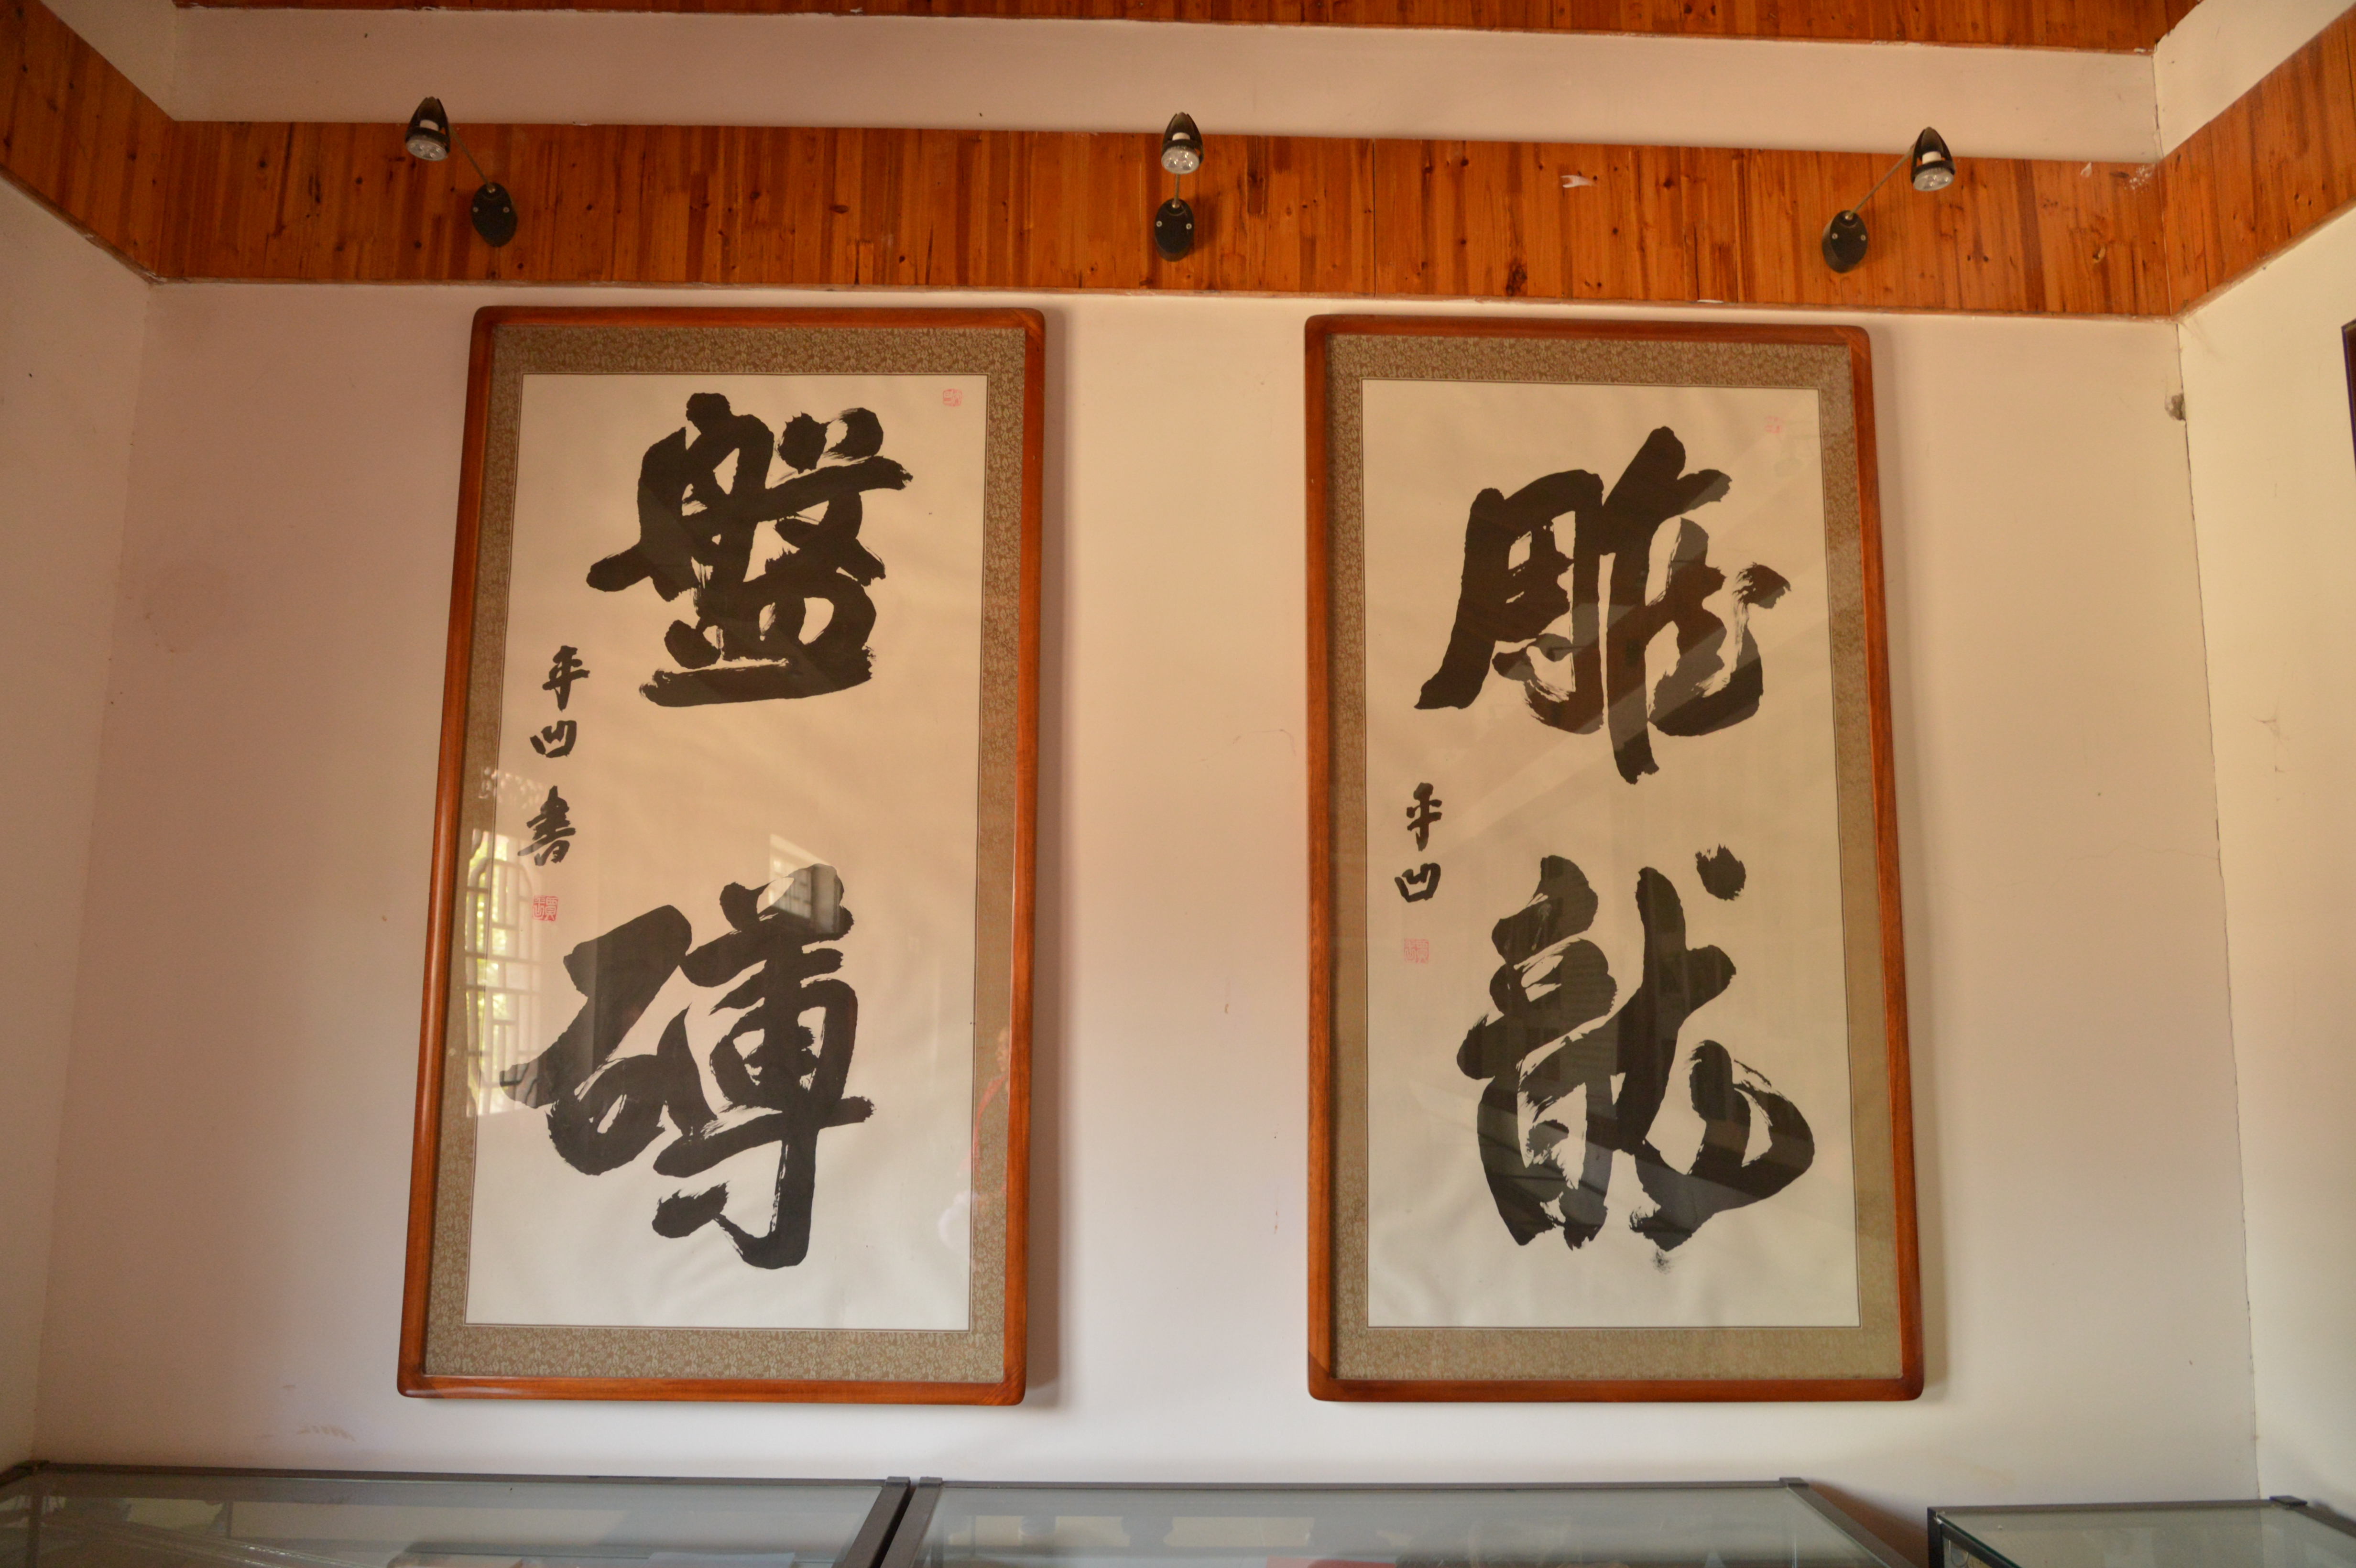 雕龍
平凹
盤礴
平凹書